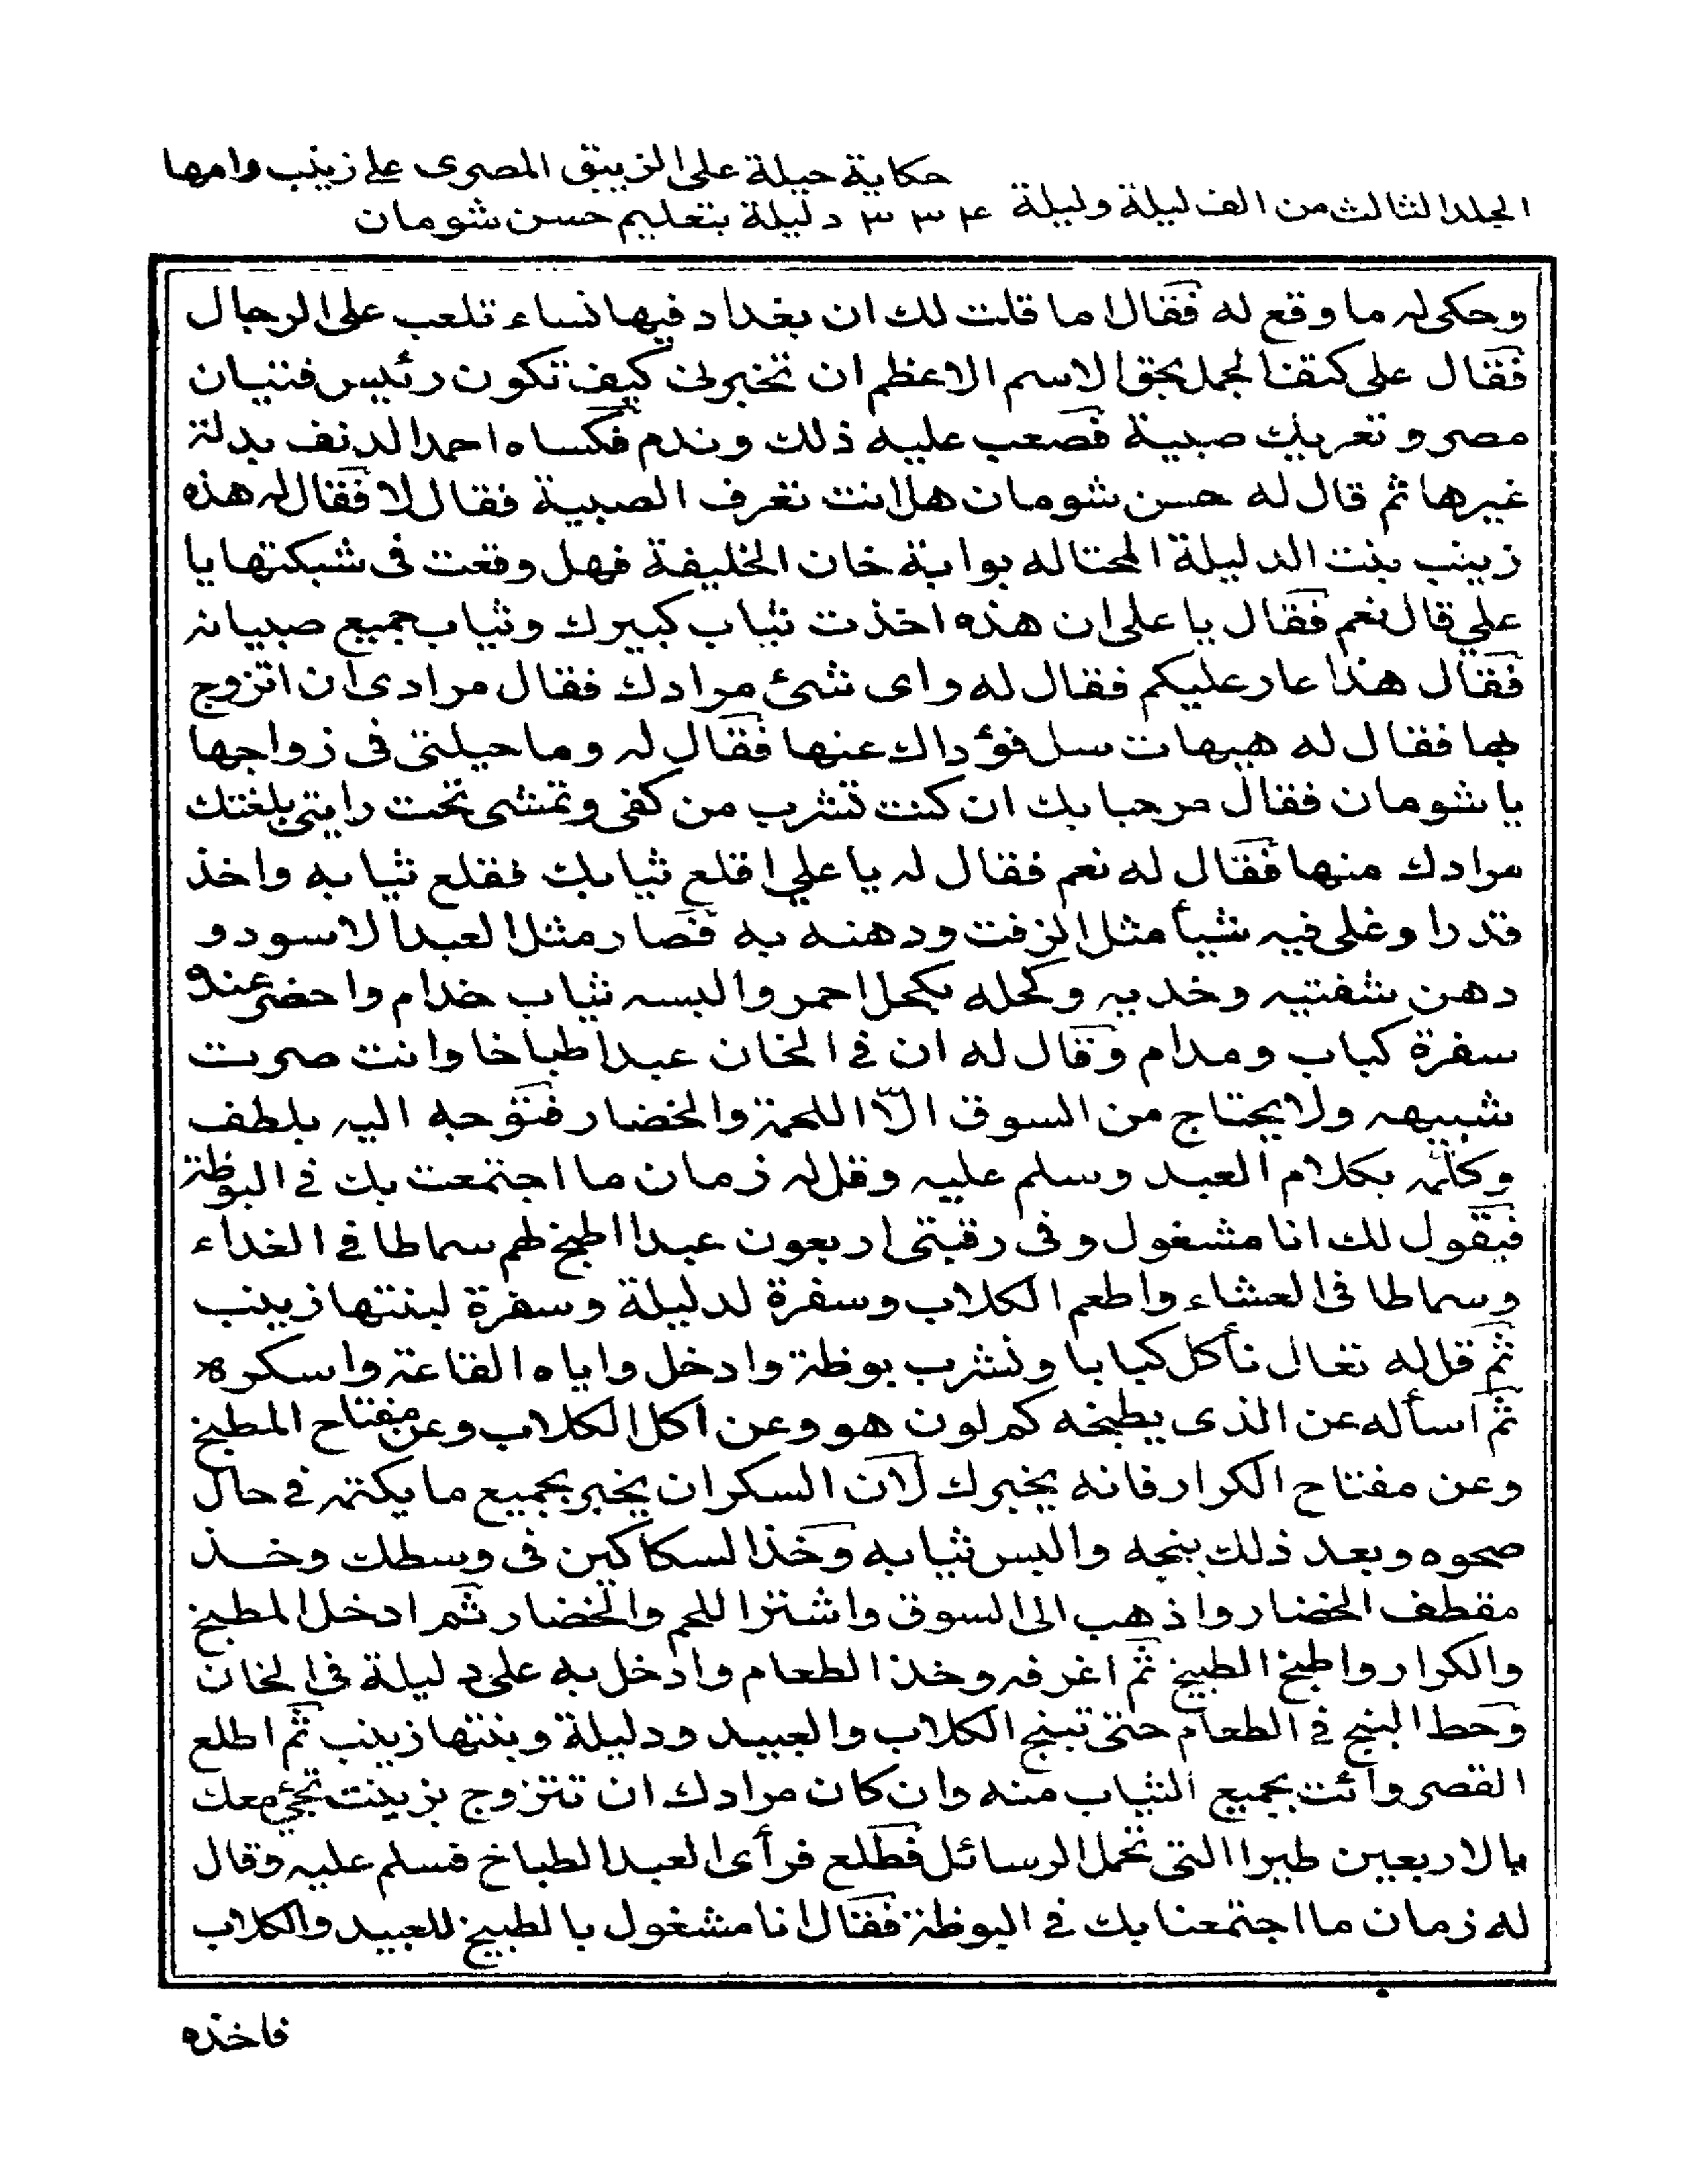 حكاية حيلة على الزيبق المصرى على زينب وامها
الجلد الثالث من الف ليلة وليلة ٣٣٤ دليلة بتعليم حسن شومان
وحكى له ما وقع له فقال اما قلت لك ان بغداد فيها نساء تلعب على الرجال
فقال على كتفنا لجمل بحق الاسم الاعظم ان تخبرنى كيف تكون رئيس فتيان
مصر و تعريك صبية فصعب عليه ذلك وندم فكساه احمد الدنف بدلة
غيرها ثم قال له حسن شومان هل انت تعرف الصبية فقال لا فقال له هذه
زينب بنت الدليلة المحتاله بوابة خان الخليفة فهل وقعت فى شبكتها يا
علي قال نعم فقال يا على ان هذه اخذت ثياب كبيرك وثياب جميع صبيانه
فقال هذا عار عليكم فقال له واى شئ مرادك فقال مرادى ان اتزوج
بها فقال له هيهات سل فؤداك عنها فقال له وما حيلتى فى زواجها
يا شومان فقال مرحبا بك ان كنت تشرب من كفى وتمشى تحت رايتى بلغتك
مرادك منها فقال له نعم فقال له يا علي اقلع ثيابك فقلع ثيابه واخذ
قدرا وغلى فيه شيأ مثل الزفت ودهنه به فصار مثل العبد الاسود و
دهن شفتيه وخديه وكحله بكحل احمر والبسه ثياب خدام واحضر عنده
سفرة كباب ومدام وقال له ان فى الخان عبدا طباخا وانت صرت
شبيهه ولا يحتاج من السوق الّا اللحمة والخضار فتوجه اليه بلطف
وكلّمه بكلام العبد وسلم عليه وقل له زمان ما اجتمعت بك فى البوظة
فيقول لك انا مشغول وفى رقبتى اربعون عبدا اطبخ لهم سماطا فى الغداء
وسماطا فى العشاء واطعم الكلاب وسفرة لدليلة وسفرة لبنتها زينب
ثم قل له تعال نأكل كبابا ونشرب بوظة وادخل واياه القاعة واسكره
ثم اسأله عن الذى يطبخه كم لون هو وعن اكل الكلاب وعن مفتاح المطبخ
وعن مفتاح الكرار فانه يخبرك لان السكران يخبر بجميع ما يكتمه فى حال
صحوه وبعد ذلك بنجه والبس ثيابه وخذ السكاكين فى وسطك وخذ
مقطف الخضار واذهب الى السوق واشتر اللحم والخضار ثم ادخل المطبخ
والكرار واطبخ الطبيخ ثم اغرفه وخذ الطعام وادخل به على دليلة فى الخان
وحط البنج فى الطعام حتى تبنج الكلاب والعبيد ودليلة وبنتها زينب ثم اطلع
القصر وائت بجميع الثياب منه وان كان مرادك ان تتزوج بزينت تجئ معك
بالاربعين طيرا التى تحمل الرسائل فطلع فرأى العبد الطباخ فسلم عليه وقال
له زمان ما اجتمعنا بك فى البوظة فقال انا مشغول بالطبيخ للعبيد والكلاب
فاخذه